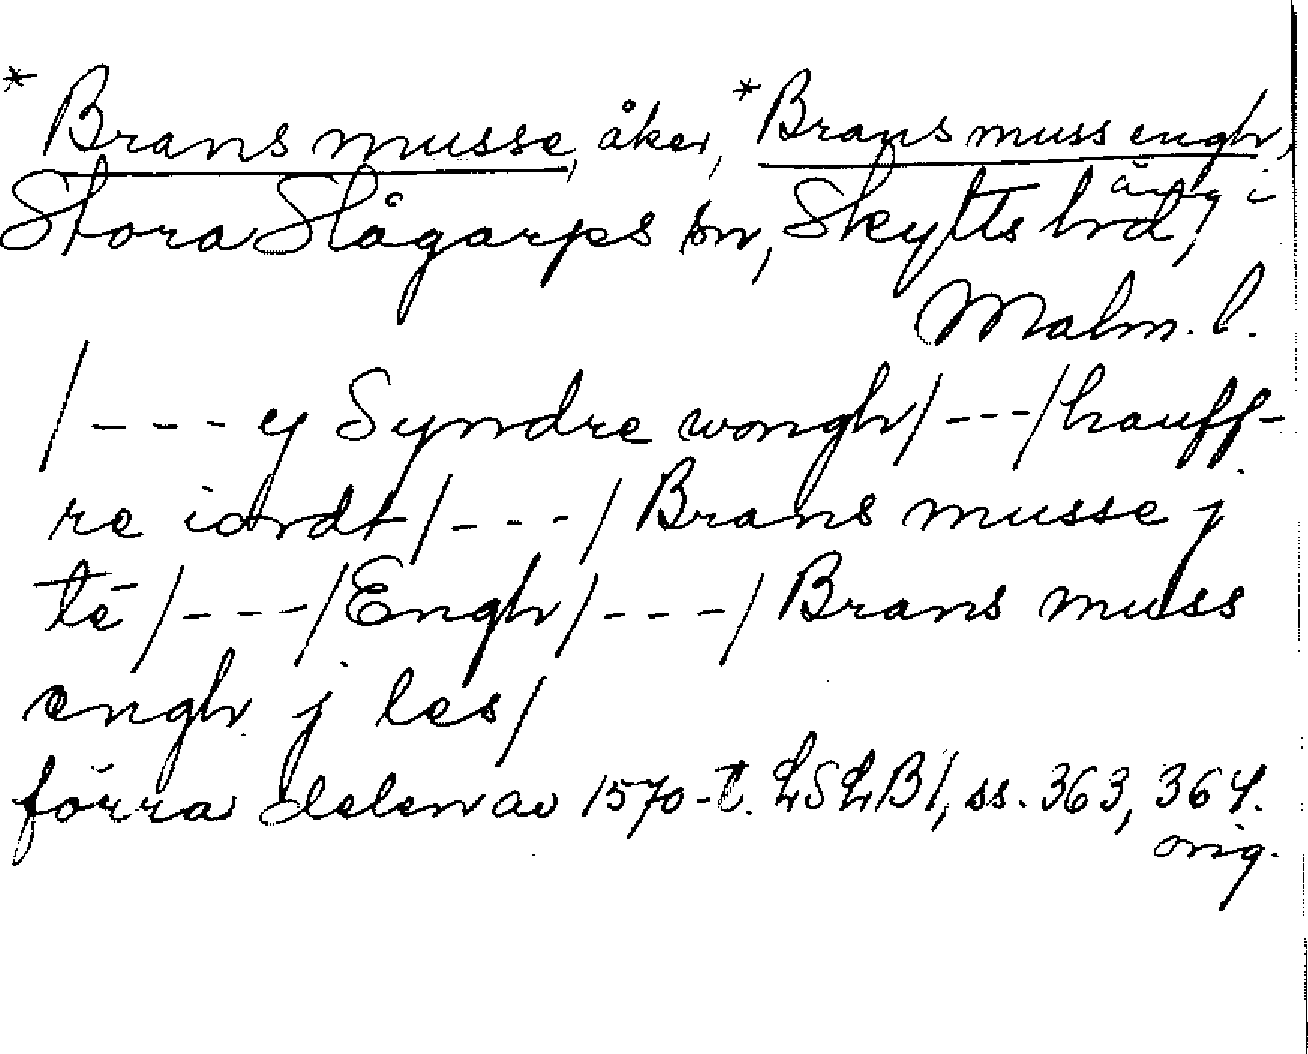 * Brans musse, åker, * Brans muss engh,
äng i
Stora Slågarps sn, Skytts hrd,
Malm. l.
/---ej Syndre wongh/---/hauff-
re iordt/---/Brans musse j
tē/---/Engh/---/Brans muss
engh j les/
förra delen av 1570-t. LSLB1, ss. 363, 364.
orig.